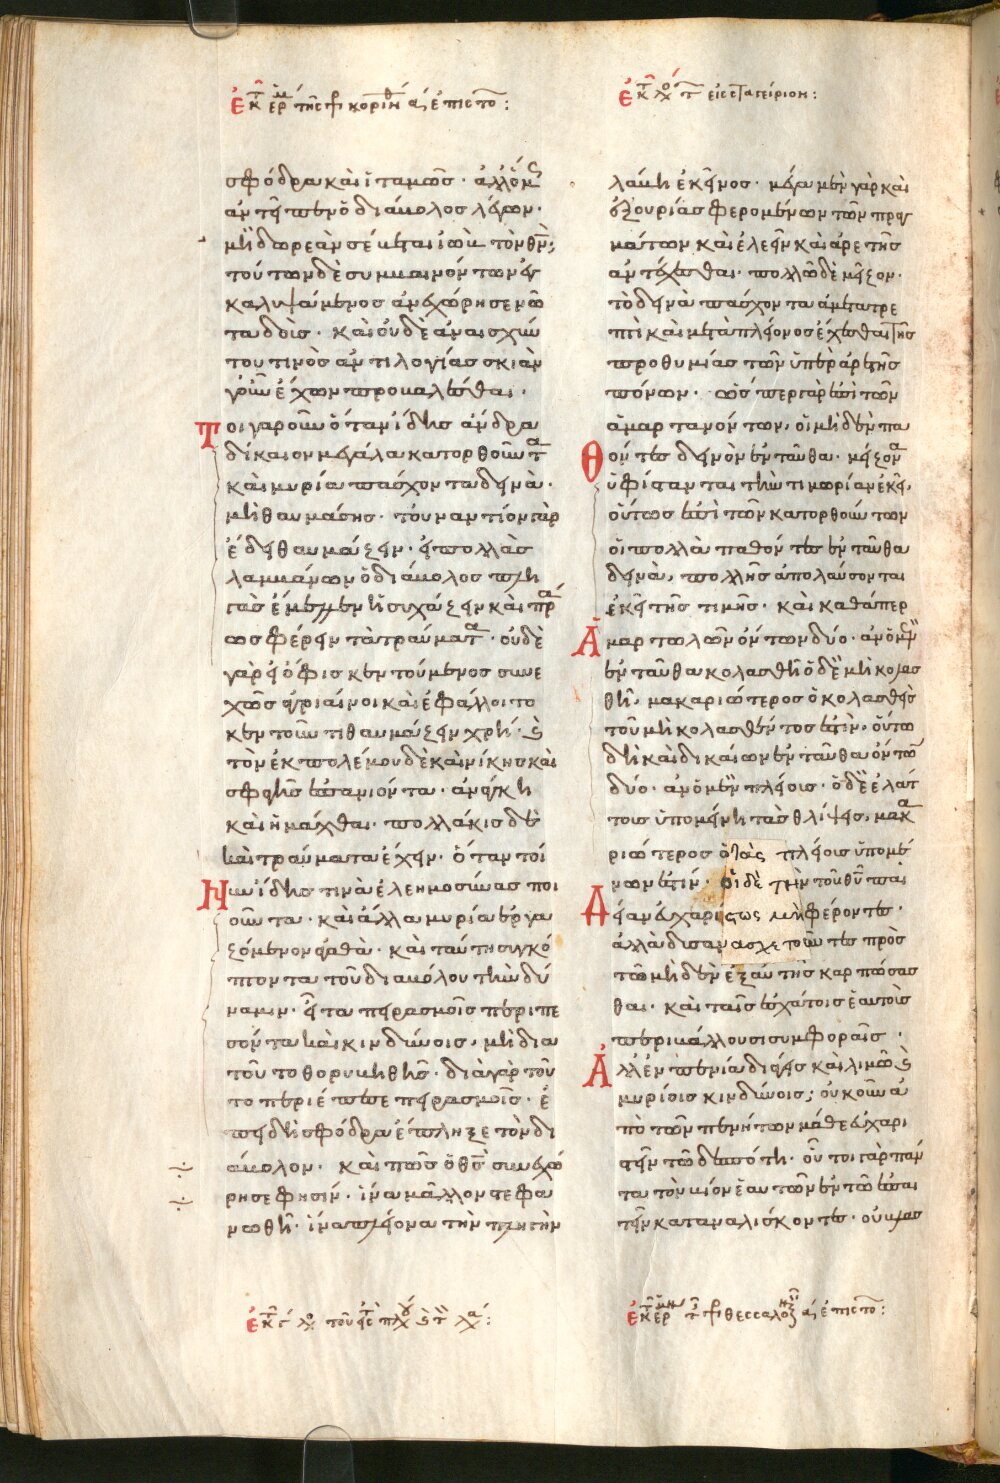 ἐκ τῆς ἑρμ τῆς πρ κορινθ α ἐπιστο :
σφόδρα καὶ ἰταμῶς · ἀλλ' ὅμως
ἀντεῖπεν ὁ διάβολος λέγων ·
μὴ δωρεὰν σέβεται ἰὼβ τὸν θν ;
τούτων δὲ συμβαινόντων ἐγ
καλυψάμενος ἀνεχώρησε νῶ
τα δοὺς · καὶ οὐδὲ ἀναισχύν
του τινὸς ἀντιλογίας σκιὰν
γοῦν ἔχων προβαλέσθαι ·
Τοιγαροῦν ὅταν ἴδης ἄνδρα
δίκαιον μεγάλα κατορθοῦντα
καὶ μυρία πάσχοντα δεινὰ ·
μὴ θαυμάσης · τοὐναντίον γὰρ
ἔδει θαυμάζειν · εἰ πολλὰς
λαμβάνων ὁ διάβολος πλη
γὰς ἔμελλεν ἡσυχάζειν καὶ πρά
ως φέρειν τὰ τραύματα · οὐδὲ
γὰρ εἰ ὄφις κεντούμενος συνε
χῶς ἀγριαίνοι καὶ ἐφάλλοιτο
κεντοῦντι θαυμάζειν χρή · καὶ
τὸν ἐκ πολέμου δὲ καὶ νίκης καὶ
σφαγῆς ἐπανιόντα · ἀνάγκη
καὶ ἡμάχθαι · πολλάκις δὲ
καὶ τραύματα ἔχειν · ὅταν τοί
Νυν ἴδης τινὰ ἐλεημοσύνας ποι
οῦντα · καὶ ἄλλα μυρία ἐργα
ζόμενον ἀγαθὰ · καὶ ταύτη συγκό
πτοντα τοῦ διαβόλου τὴν δύ
ναμιν · εἶτα πειρασμοῖς περιπε
σόντα καὶ κινδύνοις · μὴ διὰ
τοῦτο θορυβηθῆς · διὰ γὰρ τοῦ
το περιέπεσε πειρασμοῖς · ἐ
πειδὴ σφόδρα ἔπληξε τὸν δι
άβολον · καὶ πῶς ὁ θς συνεχώ
ρησε φησίν · ἵνα μᾶλλον στεφα
νωθῆ · ἵνα πλείονα τὴν πληγὴν
εἰς τ ἀνδριάντων :
λάβη ἐκεῖνος · μέγα μὲν γὰρ καὶ
ἐξ οὐρίας φερομένων τῶν πραγ
μάτων καὶ ἐλεεῖν καὶ ἀρετῆς
ἀντέχεσθαι · πολλῶ δὲ μεῖζον ·
τὸ δεινὰ πάσχοντα ἀμετατρε
πτὶ καὶ μετὰ πλείονος ἔχεσθαι τῆς
προθυμίας τῶν ὑπὲρ ἀρετῆς
πόνων · ὥσπερ γὰρ ἐπὶ τῶν
ἁμαρτανόντων · οἱ μηδὲν πα
Θόντες δεινὸν ἐνταῦθα · μείζονα
ὑφίστανται τὴν τιμωρίαν ἐκεῖ ·
οὕτως ἐπὶ τῶν κατορθούντων
οἱ πολλὰ παθόντες ἐνταῦθα
δεινὰ · πολλῆς ἀπολαύσονται
ἐκεῖ τῆς τιμῆς · καὶ καθάπερ
Ἁμαρτωλῶν ὄντων δύο · ἂν ὁ μὲν
ἐνταῦθα κολασθῆ ὁ δὲ μὴ κολασ
θῆ · μακαριώτερος ὁ κολασθεὶς
τοῦ μὴ κολασθέντος ἐστὶν · οὕτω
δὴ καὶ δικαίων ἐνταῦθα ὄντων
δύο · ἂν ὁ μὲν πλείοις · ὁ δὲ ἐλάτ
τοις ὑπομένη τὰς θλίψεις · μακα
ριώτερος ὁ τὰς πλείοις ὑπομέ
νων ἐστίν · οἱ δὲ τὴν τοῦ θυ παι
Δείαν εὐχαρίστως μὴ φέροντες ·
ἀλλὰ δισανασχετοῦντες πρὸς
τῶ μηδὲν ἐξ αὐτῆς καρπώσασ
θαι · καὶ ταῖς ἐσχάτοις ἑαυτοὺς
περιβάλλουσι συμφοραῖς ·
Ἀλλ' ἐν πενία διάγεις καὶ λιμῶ καὶ
μυρίοις κινδύνοις ; οὐκοῦν ἀ
πὸ τῶν πενήτων μάθε εὐχαρι
στεῖν τῶ δεσπότη · οὗτοι γὰρ πάν
τα τὸν βίον ἑαυτῶν ἐν τῶ ἐπαι
τεῖν καταναλίσκοντες · οὐ βλασ
ἐκ τῆς ἑρμην τ πρ θεσσαλο α ἐπιστο :